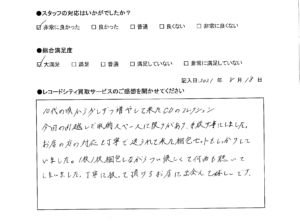 ●スタッフの対応はいかがでしたか?
☑非常に良かった □良かった □普通 □良くない □非常に良くない
●総合満足度
☑大満足 □満足 □普通 □満足していない □非常に満足していない
記入日:2021年 8月 18日
●レコードシティ買取サービスのご感想を聞かせてください
10代の頃から少しずつ増やして来たCDのコレクション
今回の引越しで収納スペースに限りがあり手放す事にしました。
お店の方の対応も丁寧で送られて来た梱包セットもしっかりして
いました。1枚1枚梱包しながらつい懐しくて何曲も聴いて
しまいました。丁寧に扱って頂けるお店に出会えて嬉しいです。